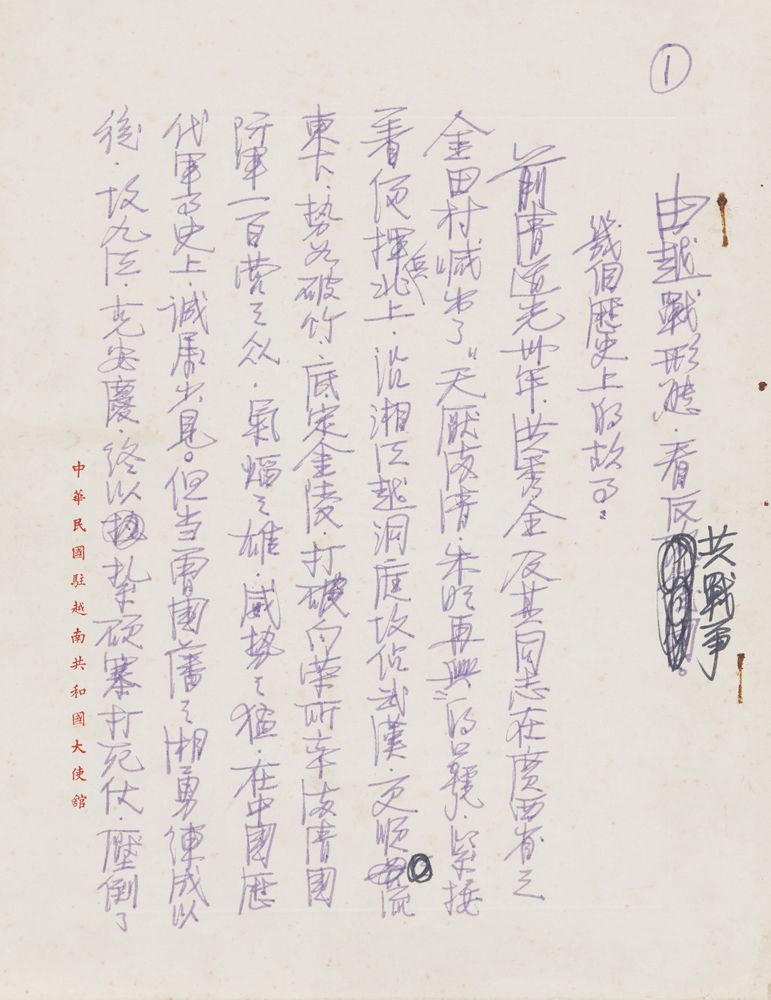 ①
由越戰形態·看反共戰爭
幾個歷史上的故事:
前清道光卅年·洪秀全及其同志在廣西省之
金田村喊出了"天厭滿清·朱明再興"的口號·緊接
着便揮兵北上·沿湘江越洞庭攻佔武漢·更順流
東下·勢如破竹·底定金陵·打破向榮所率滿清圍
防軍一百營之众·氣燄之雄·威勢之猛·在中國歷
代軍事史上·誠屬少見。但当曾國藩之湘勇練成以
後·攻九江·克安慶·終以紮硬寨打死仗·壓倒了
中華民國駐越南共和國大使館